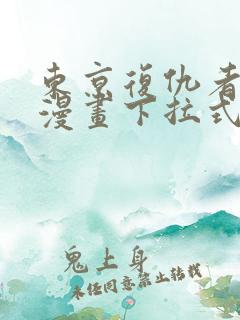 東京復仇者
漫畫下拉式
鬼上身
未經同意禁止轉載